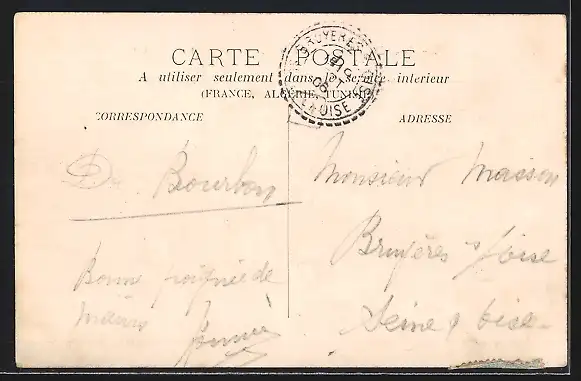 CARTE POSTALE
A utiliser seulement dans le service interieur
(FRANCE, ALGÉRIE, TUNISIE)
CORRESPONDANCE
ADRESSE
BRUYERES
OISE
Dr Bourbon
Bonne poignée de
mains
Monsieur Masson
Bruyères s/ Oise
Seine & Oise